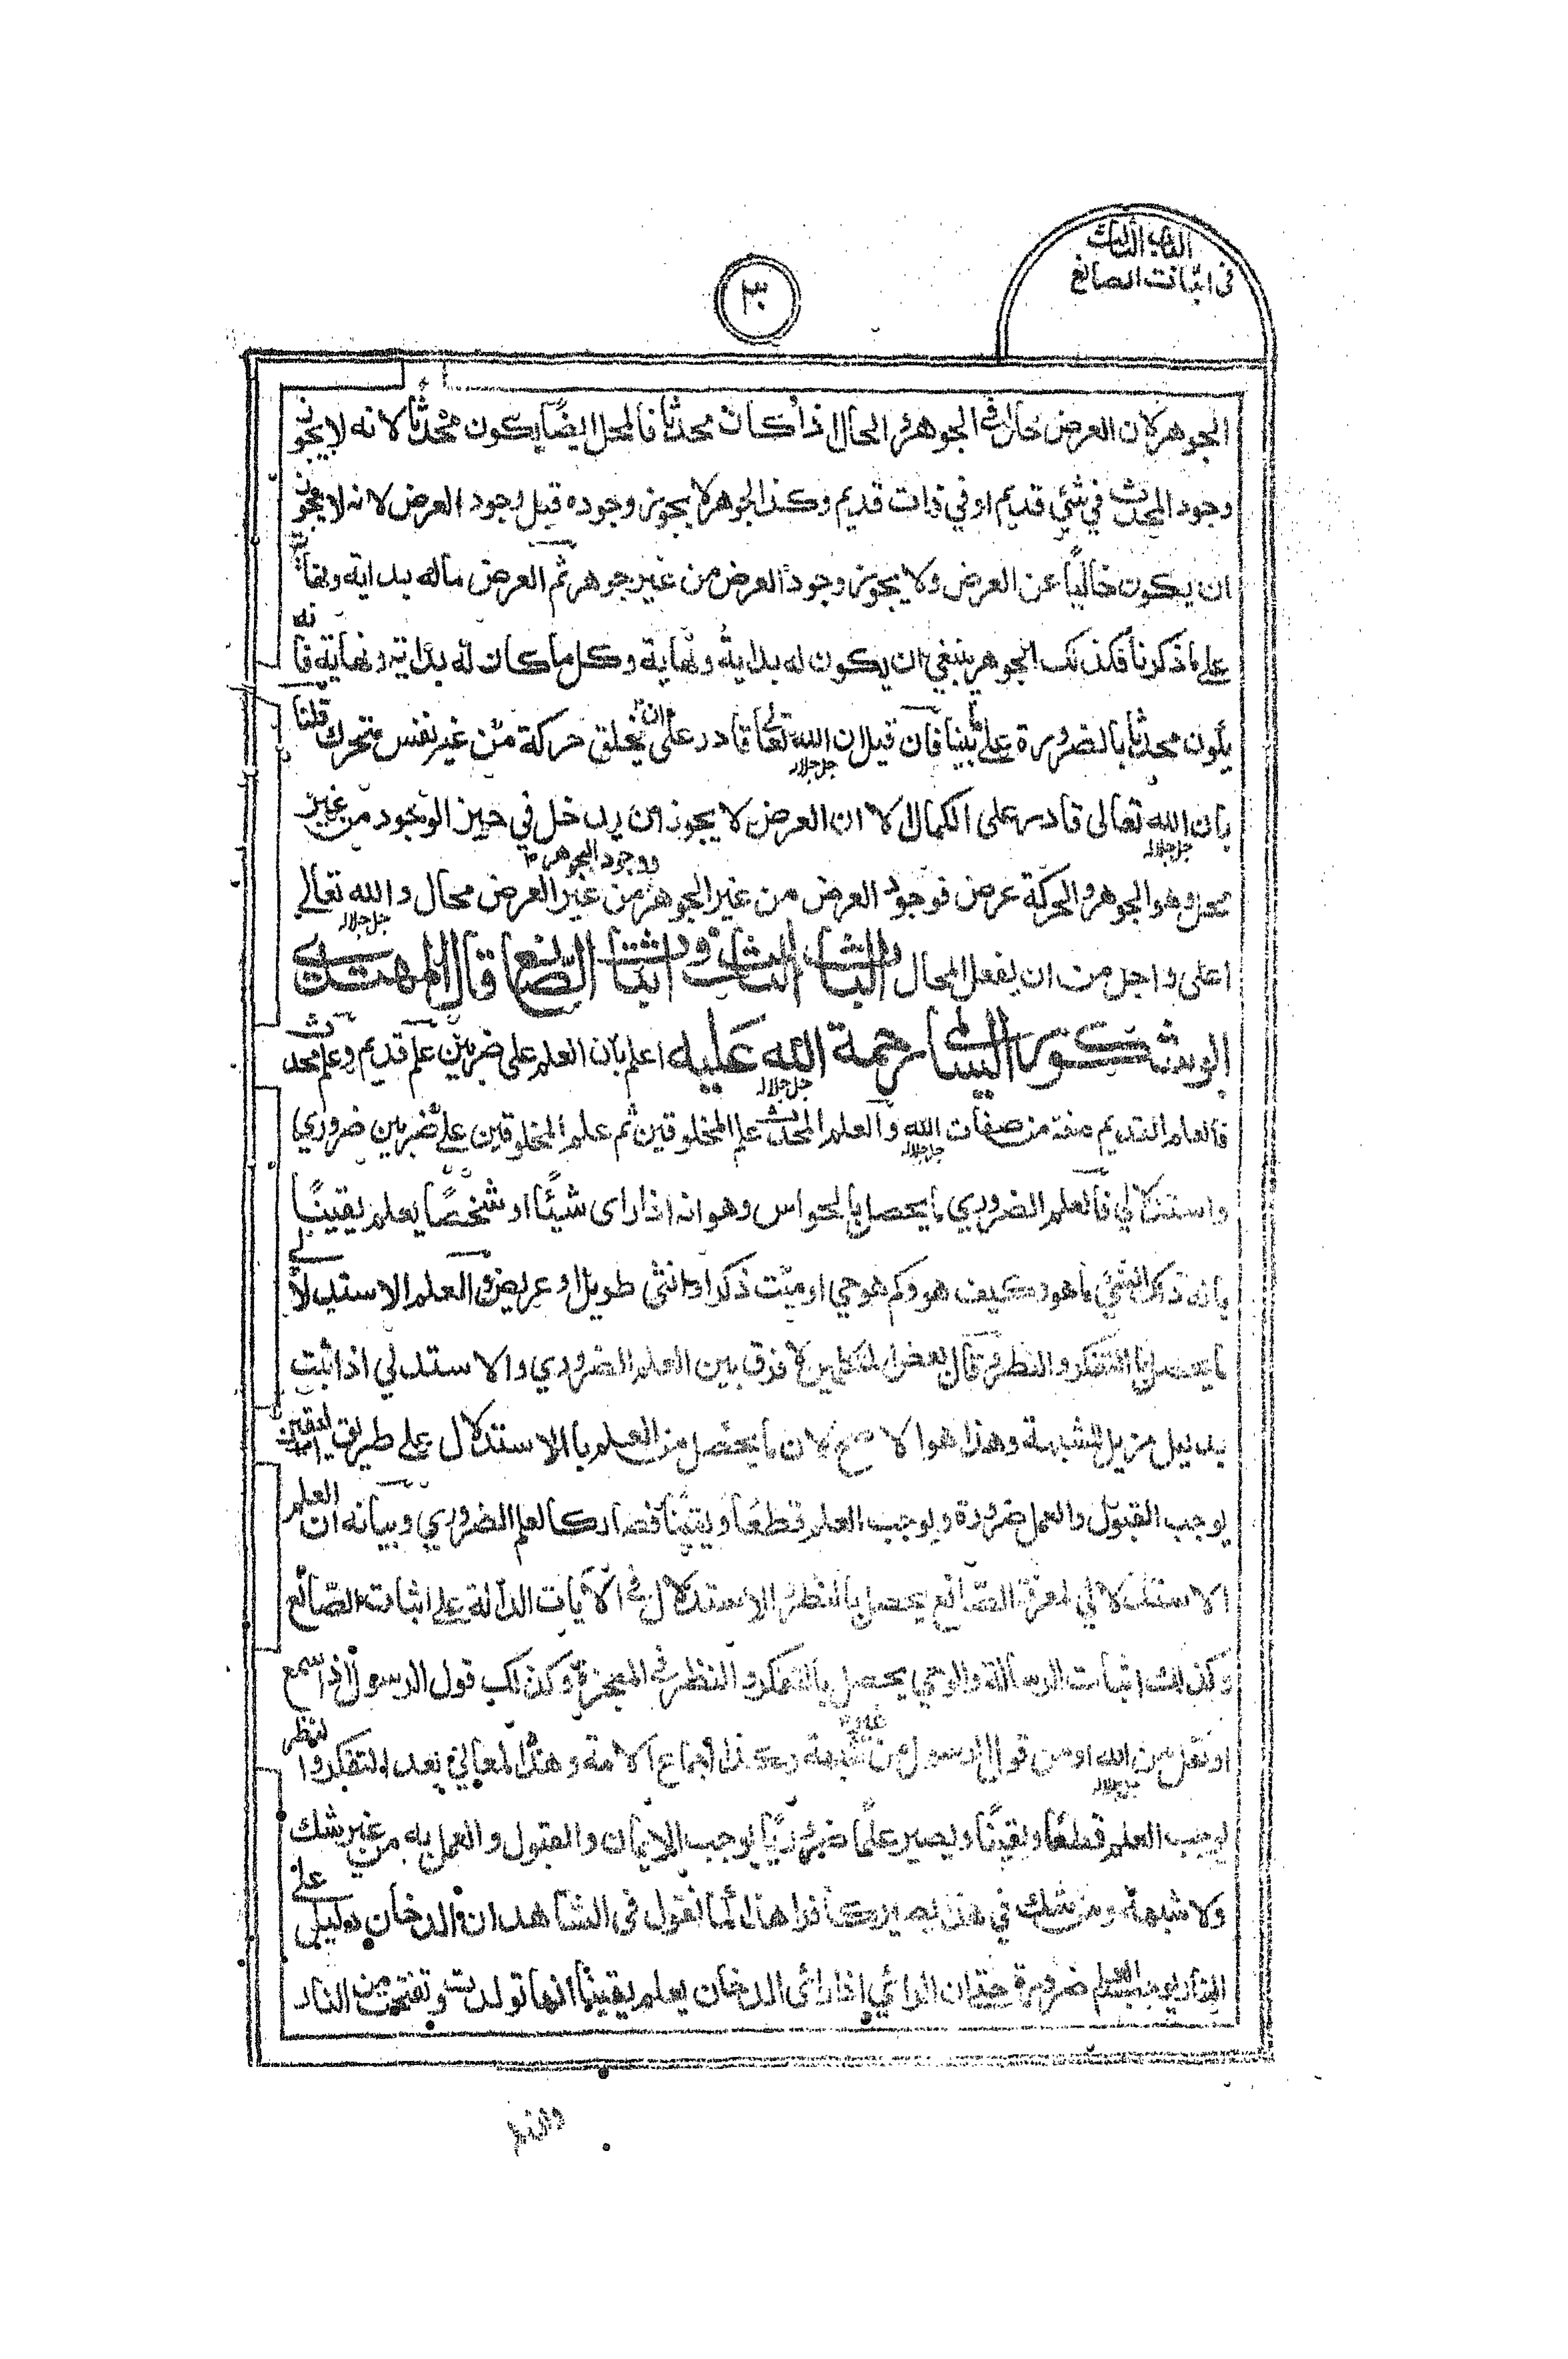 الباب الثالث
فی اثبات الصانع
٣٠
الجوهر لان العرض حال فی الجوهر و الحال اذا كان محدثا فالمحل ايضًا يكون محدثًا لانه لا يجوز
وجود المحدث في شئ قديم او في ذات قديم وكذا الجوهر لا يجوز وجوده قبل وجود العرض لانه لا يجوز
ان يكون خاليًا عن العرض ولا يجوز وجود العرض من غير جوهر ثم العرض ماله بداية ونهاية
على ما ذكرنا فكذلك الجوهر ينبغي ان يكون له بداية ونهاية وكل ما كان له بداية ونهاية فانه
يكون محدثا بالضرورة على ما بينا فان قيل ان الله تعالى جل جلاله قادر على ان يخلق حركة من غير نفس متحرك قلنا
بان الله تعالى جل جلاله قادر على الكمال الا ان العرض لا يجوز ان يدخل في حيز الوجود من غير
محل وهو الجوهر والحركة عرض فوجود العرض من غير الجوهر ووجود الجوهر من غير العرض محال والله تعالى جل جلاله
اعلى واجل من ان يفعل المحال الباب الثالث فی اثبات الصانع قال المهتدي
ابو شكور السالمي رحمة الله عليه اعلم بان العلم على ضربين علم قديم وعلم محدث
فالعلم القديم صفة من صفات الله جل جلاله والعلم المحدث علم المخلوقين ثم علم المخلوقين على ضربين ضروري
واستدلالي فالعلم الضروري ما يحصل بالحواس وهو انه اذا راى شيئًا او شخصًا يعلم يقينًا
بانه ذلك الشئ ما هو وكيف هو وكم هو حي او ميت ذكر او انثى طويل او عريض والعلم الاستدلالي
ما يحصل بالتفكر والنظر وقال بعض المتكلمين لا فرق بين العلم الضروري والاستدلالي اذا ثبت
بدليل مزيل للشبهة وهذا هو الاصح لان ما يحصل من العلم بالاستدلال على طريق اليقين
يوجب القبول والعمل ضرورة ويوجب العلم قطعًا ويقينًا فصار كالعلم الضروري وبيانه ان العلم
الاستدلالي لمعرفة الصانع يحصل بالنظر والاستدلال في الآيات الدالة على اثبات الصانع
وكذلك اثبات الرسالة والوحي يحصل بالتفكر والنظر في المعجزة وكذلك قول الرسول اذا سمع
او نقل من الله جل جلاله او من قول الرسول من غير شبهة وكذا اجماع الامة وهذه المعاني بعد التفكر والنظر
يوجب العلم قطعًا ويقينًا ويصير علمًا ضروريًا يوجب الايمان والقبول والعمل به من غير شك
ولا شبهة ومن شك في هذا يصير كافرا هذا كما نقول في الشاهد ان الدخان دليل على
النار يوجب العلم ضرورة حتى ان الرائي اذا راى الدخان يعلم يقينًا انها تولدت وتفتحت من النار